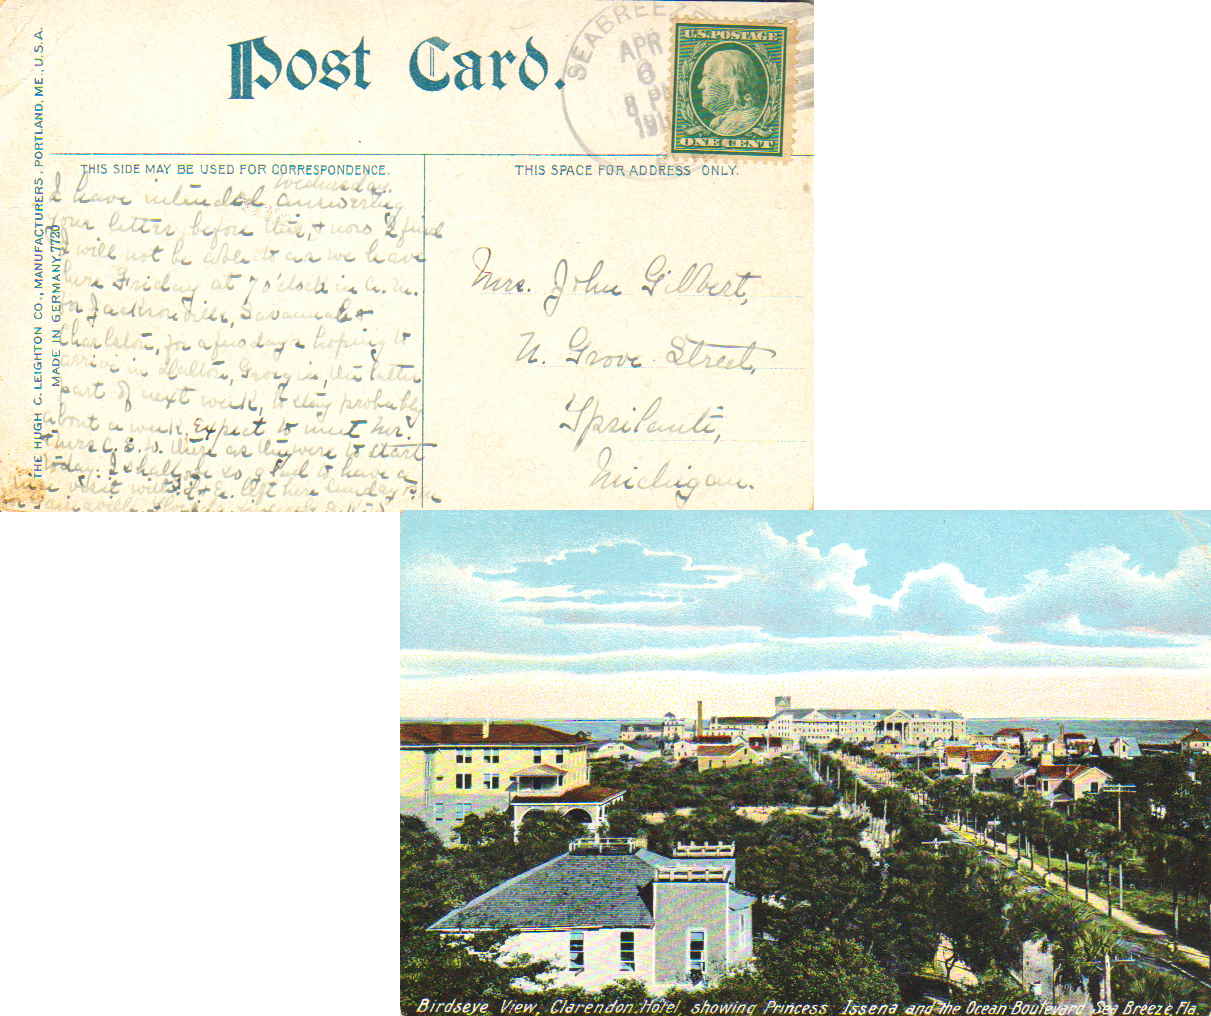 Post Card.
SEABREE
APR
6
8 P
191
U.S. POSTAGE
ONE CENT
THE HUGH C. LEIGHTON CO., MANUFACTURERS, PORTLAND, ME., U.S.A.
MADE IN GERMANY. 7720
THIS SIDE MAY BE USED FOR CORRESPONDENCE.
THIS SPACE FOR ADDRESS ONLY.
Wednesday.
I have intended answering
your letter before this, & now I find
I will not be able to as we leave
here Friday at 7 o'clock in A.M.
for Jacksonville, Savannah &
Charleston, for a few days hoping to
arrive in Dalton, Georgia, the latter
part of next week, to stay probably
about a week. Expect to meet Mr.
& Mrs. C. E. there as they were to start
today. I shall be so glad to have a
nice visit with left here Sunday
Mrs. John Gilbert,
N. Grove Street,
Ypsilanti,
Michigan.
Birdseye View, Clarendon Hotel, showing Princess Issena and the Ocean Boulevard Sea Breeze, Fla.